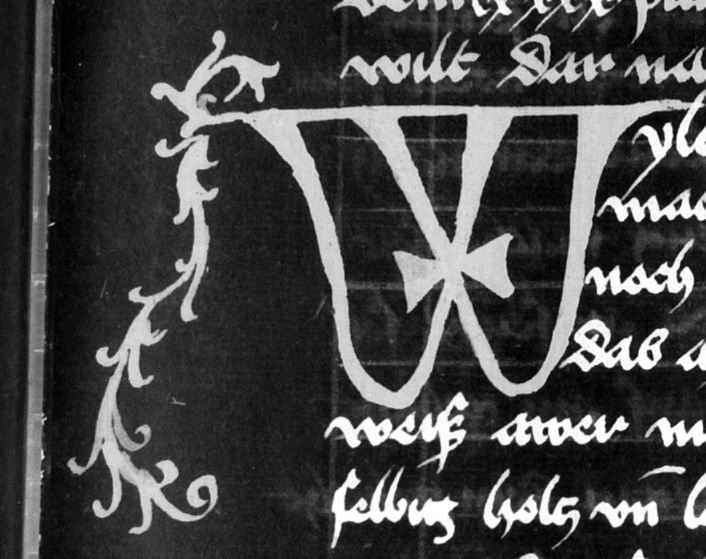 wilt Dar na
W yle
mac
noch
Das a
weiß awer m
selbig holcz vn̄ l